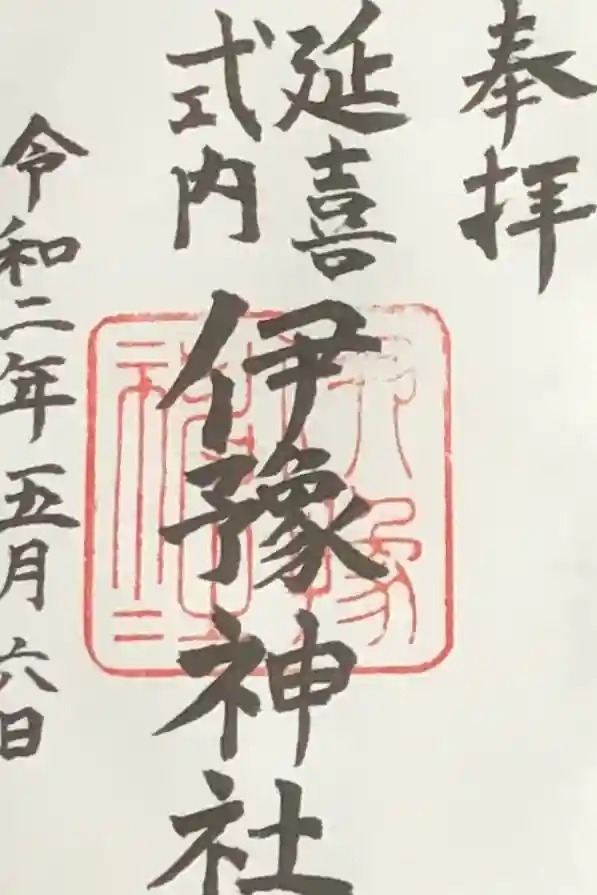 奉拝
延喜
式内
伊豫神社
令和二年五月六日